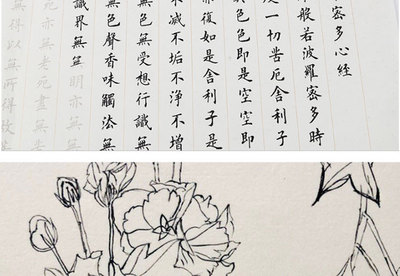 密多心經
般若波羅密多時
一切苦厄舍利子
色色即是空空即
亦復如是舍利子是
不減不垢不淨不增
無色無受想行識無
色聲香味觸法無
識界無無明亦無
亦無老死盡無
無得以無所得故